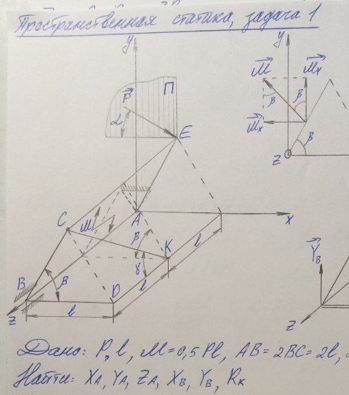 Пространственная статика, задача 1
y
П
P
α
E
M
A
x
C
β
K
γ
B
β
l
D
l
l
z
y
M
Mx
β
β
Mx
z
β
YB
z
Дано: P, l, M=0,5Pl, AB=2BC=2l,
Найти: XA, YA, ZA, XB, YB, RK